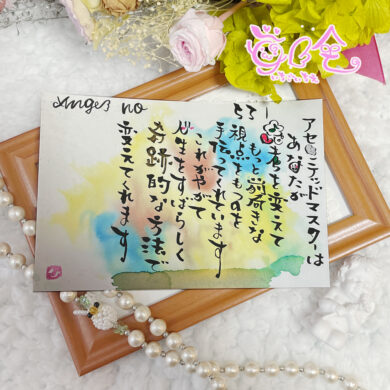 Anges no
アセンデッドマスターは
あなたが
思考を変えて
もっと前向きな
視点でものを
手伝ってくれています
これがやがて
人生をすばらしく
奇跡的な方法で
変えてくれます